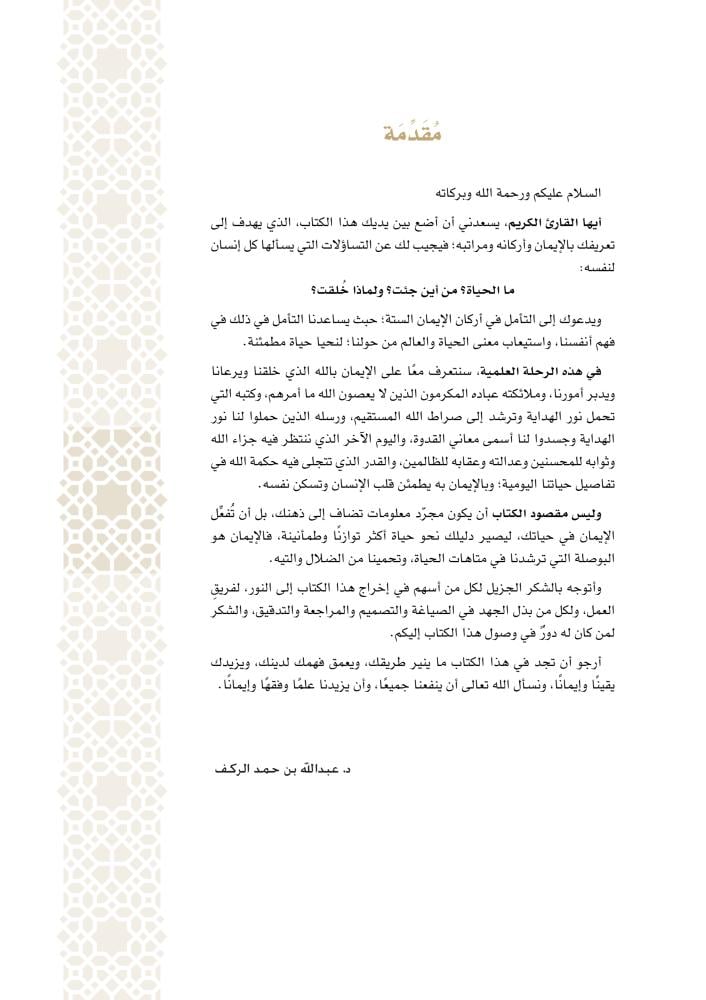 مُقَدِّمَة
السلام عليكم ورحمة الله وبركاته
أيها القارئ الكريم، يسعدني أن أضع بين يديك هذا الكتاب، الذي يهدف إلى
تعريفك بالإيمان وأركانه ومراتبه؛ فيجيب لك عن التساؤلات التي يسألها كل إنسان
لنفسه:
ما الحياة؟ من أين جئت؟ ولماذا خُلقت؟
ويدعوك إلى التأمل في أركان الإيمان الستة؛ حيث يساعدنا التأمل في ذلك في
فهم أنفسنا، واستيعاب معنى الحياة والعالم من حولنا؛ لنحيا حياة مطمئنة.
في هذه الرحلة العلمية، سنتعرف معًا على الإيمان بالله الذي خلقنا ويرعانا
ويدبر أمورنا، وملائكته عباده المكرمون الذين لا يعصون الله ما أمرهم، وكتبه التي
تحمل نور الهداية وترشد إلى صراط الله المستقيم، ورسله الذين حملوا لنا نور
الهداية وجسدوا لنا أسمى معاني القدوة، واليوم الآخر الذي ننتظر فيه جزاء الله
وثوابه للمحسنين وعدالته وعقابه للظالمين، والقدر الذي تتجلى فيه حكمة الله في
تفاصيل حياتنا اليومية؛ وبالإيمان به يطمئن قلب الإنسان وتسكن نفسه.
وليس مقصود الكتاب أن يكون مجرّد معلومات تضاف إلى ذهنك، بل أن تُفعِّل
الإيمان في حياتك، ليصير دليلك نحو حياة أكثر توازنًا وطمأنينة، فالإيمان هو
البوصلة التي ترشدنا في متاهات الحياة، وتحمينا من الضلال والتيه.
وأتوجه بالشكر الجزيل لكل من أسهم في إخراج هذا الكتاب إلى النور، لفريقِ
العمل، ولكل من بذل الجهد في الصياغة والتصميم والمراجعة والتدقيق، والشكر
لمن كان له دورٌ في وصول هذا الكتاب إليكم.
أرجو أن تجد في هذا الكتاب ما ينير طريقك، ويعمق فهمك لدينك، ويزيدك
يقينًا وإيمانًا، ونسأل الله تعالى أن ينفعنا جميعًا، وأن يزيدنا علمًا وفقهًا وإيمانًا.
د. عبدالله بن حمد الركف